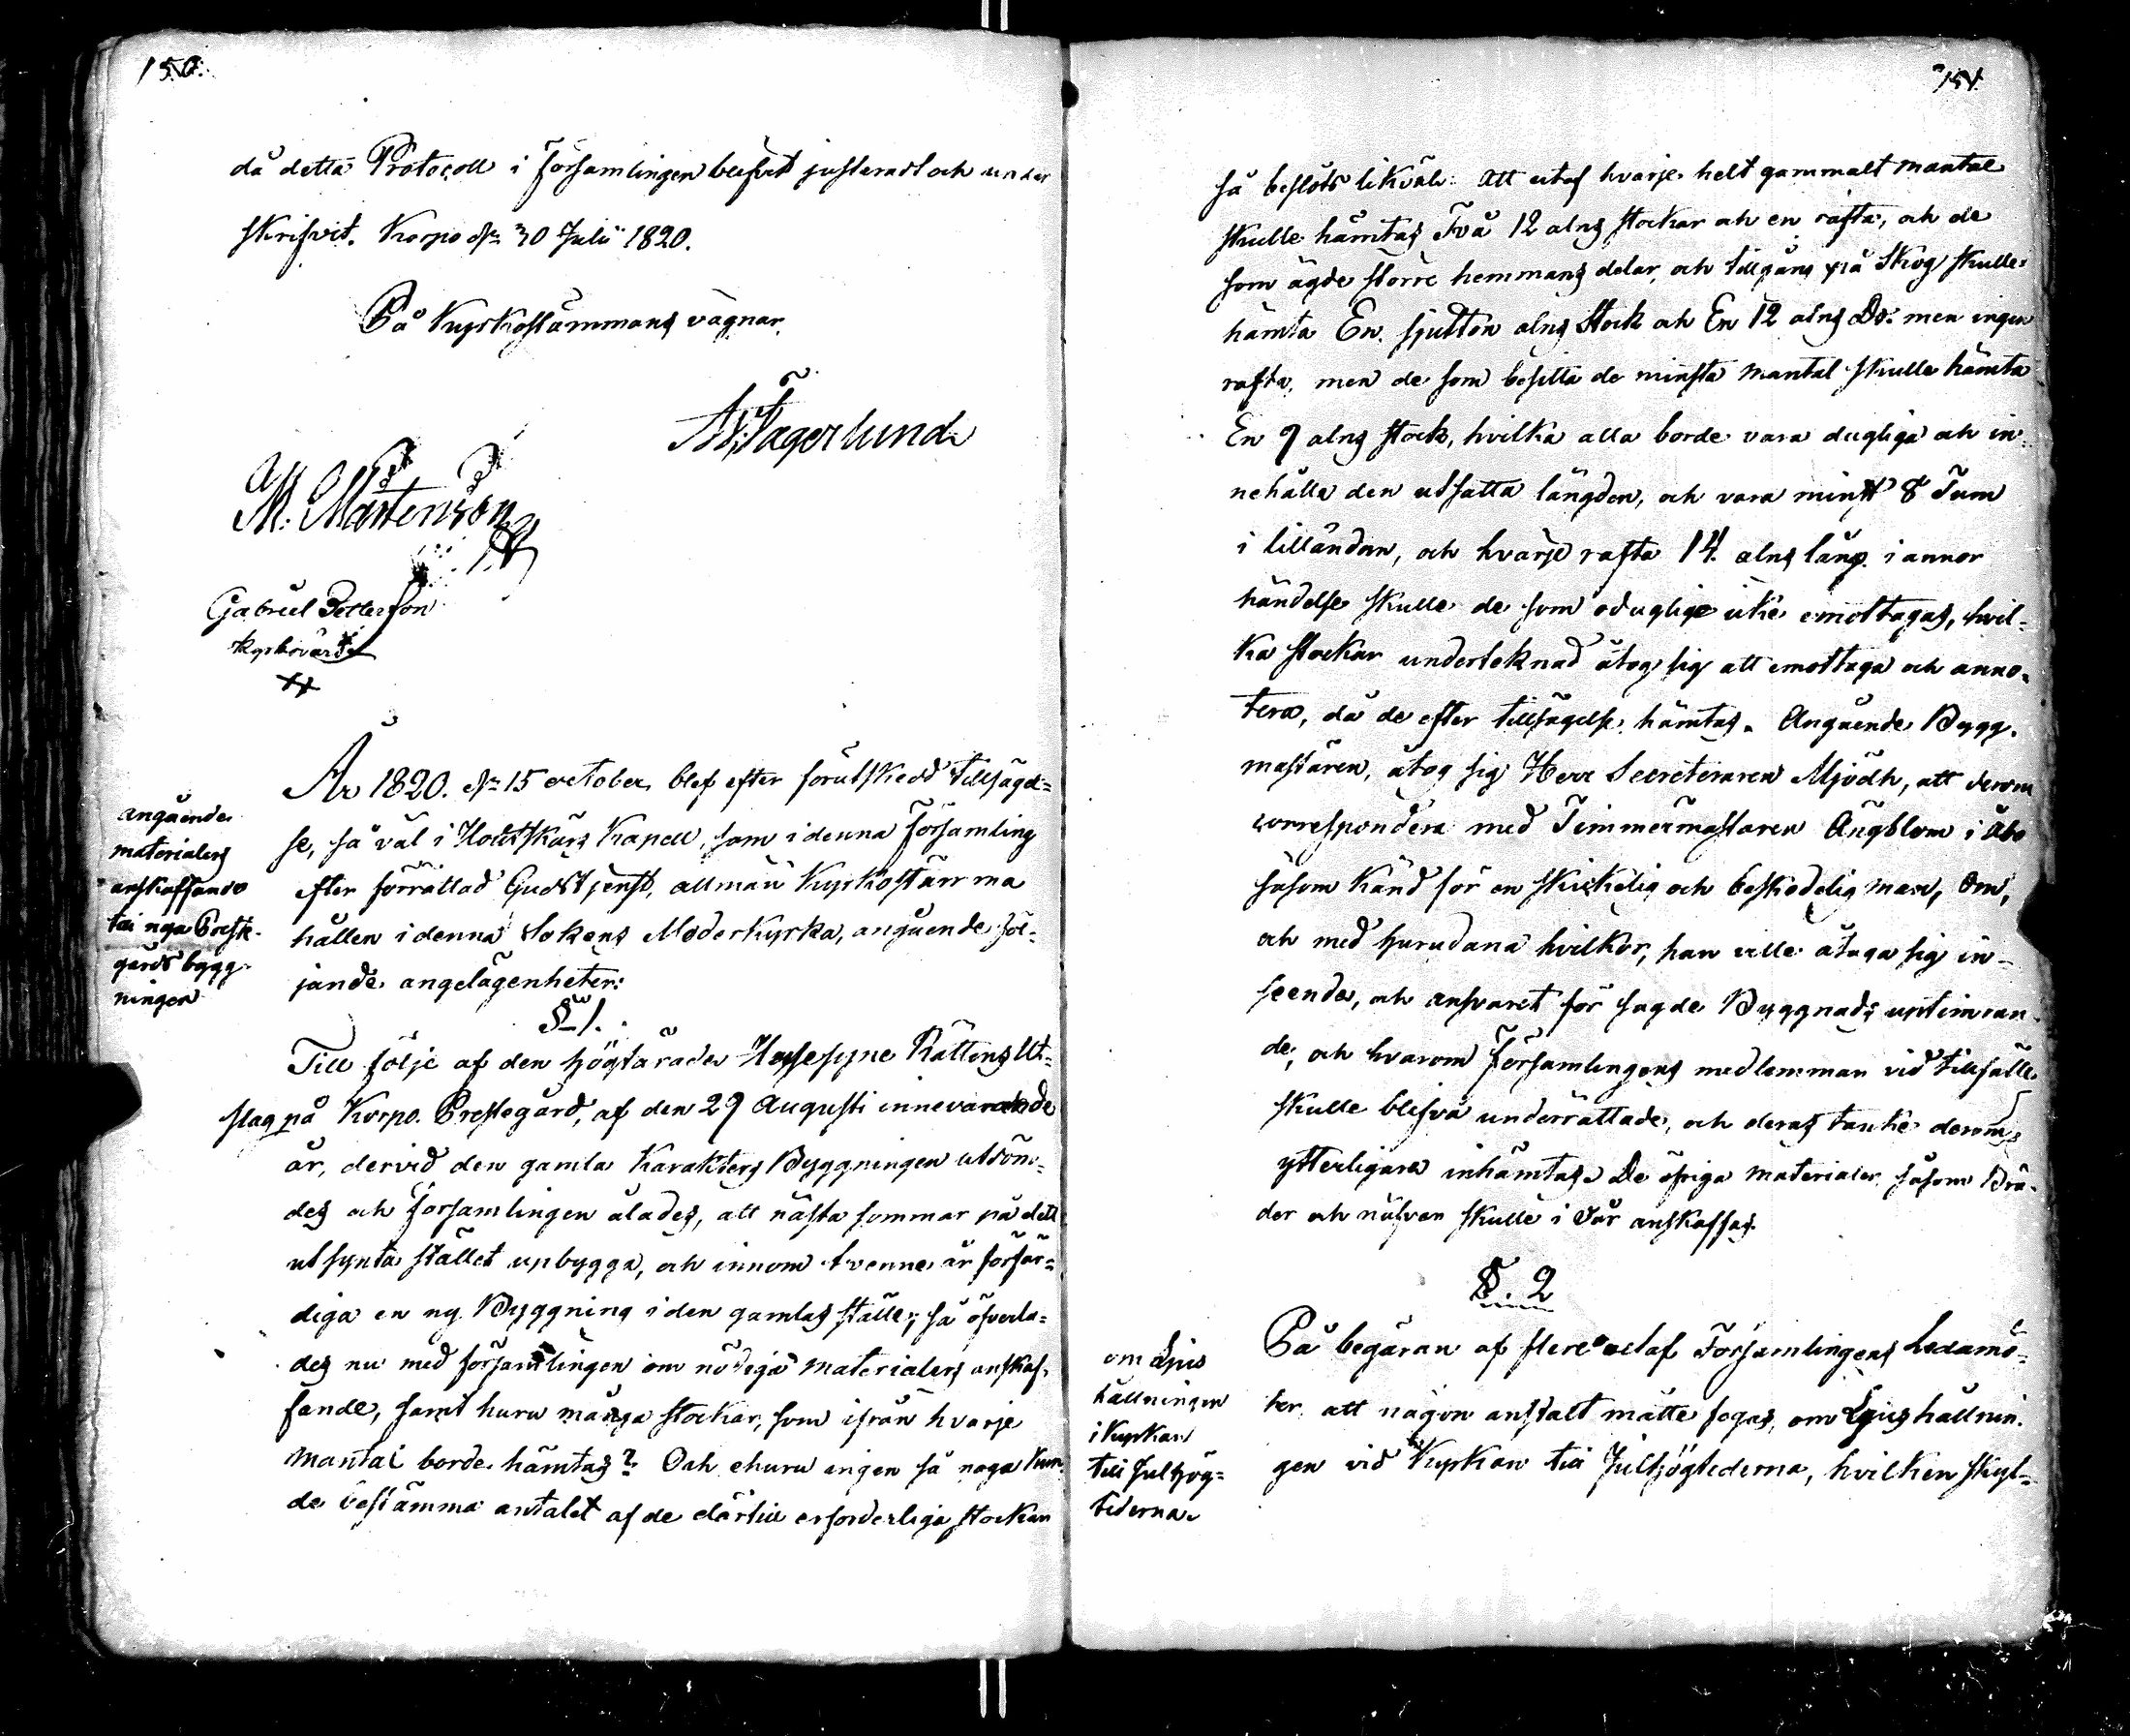 150.
då detta Protocoll i Församlingen blifvit justeradt och under
skrifvit. Korpo dn 30 Julii 1820.
På Kyrkostämmans vägnar
A. Fagerlund
M. Mårtenson
Gabriel Petterson
Kyrkovärd
År 1820. dn 15 october blef efter förutskedd tillsägel=
se, så väl i Houtskärs Kapell, som i denna Församling
efter förrättad Gudstjenst, allmän Kyrkostämma
hållen i denna Sokens Moderkyrka, angående föl=
jande angelägenheter:
angående
materialers
anskaffande
till nya Preste-
gårds bygg-
ningen
§ 1.
Till följe af den högtärade Häfsesyne Rättens Ut=
slag på Korpo Prestegård, af den 29 Augusti innevarande
år, dervid den gamla Karakters Byggningen utdöm=
des och Församlingen ålades, att nästa sommar på dett
utsynta stället upbygga, och innom tvenne år förfär=
diga en ny Byggning i den gamlas ställe; så öfverla=
des nu med församlingen om nödiga materialers anskaf=
fande, samt huru många stockar, som ifrån hvarje
mantal borde hämtas? Och ehuru ingen så noga kun-
de bestämma antalet af de därtill erforderliga stockar
151.
så beslöts likväl: Att utaf hvarje helt gammalt mantal
skulle hämtas Två 12 alns stockar och en rafta, och de
som ägde större hemmans delar, och tillgång på Skog skulle
hämta En sjutton alns Stock och En 12 alns Do: men ingen
rafta, men de som besitta de minsta mantal skulle hämta
En 9 alns stock, hvilka alla borde vara dugliga och in=
nehålla den utsatta längden, och vara minst 8 Tum
i lilländan, och hvarje rafta 14 alns lång. i annor
händelse skulle de som oduglige icke emottagas, hvil=
ka stockar underteknad åtog sig att emottaga och anno=
tera, då de efter tillsägelse hämtas. Angående Bygg-
mästaren, åtog sig Herr Secreteraren Mjödh, att derom
correspondera med Timmermästaren Ängblom i Åbo
såsom känd för en skickelig och beskedelig man, Om,
och med hurudana hvilkor, han ville åtaga sig in-
seende, och ansvaret för sagde Byggnads uptimran-
de, och hvarom Församlingens medlemmar vid tillfälle
skulle blifva underrättade, och deras tanke derom
ytterligare inhämtas. De öfriga materialer såsom Brä-
der och näfver skulle i Vår anskaffas.
§. 2
På begäran af flere utaf Församlingens Ledamö=
ter att någon anstalt måtte fogas, om Ljushållnin-
gen vid Kyrkan till Julhögtiderna, hvilken skyl=
om Ljus
hållningen
i Kyrkan
till Julhög=
tiderna